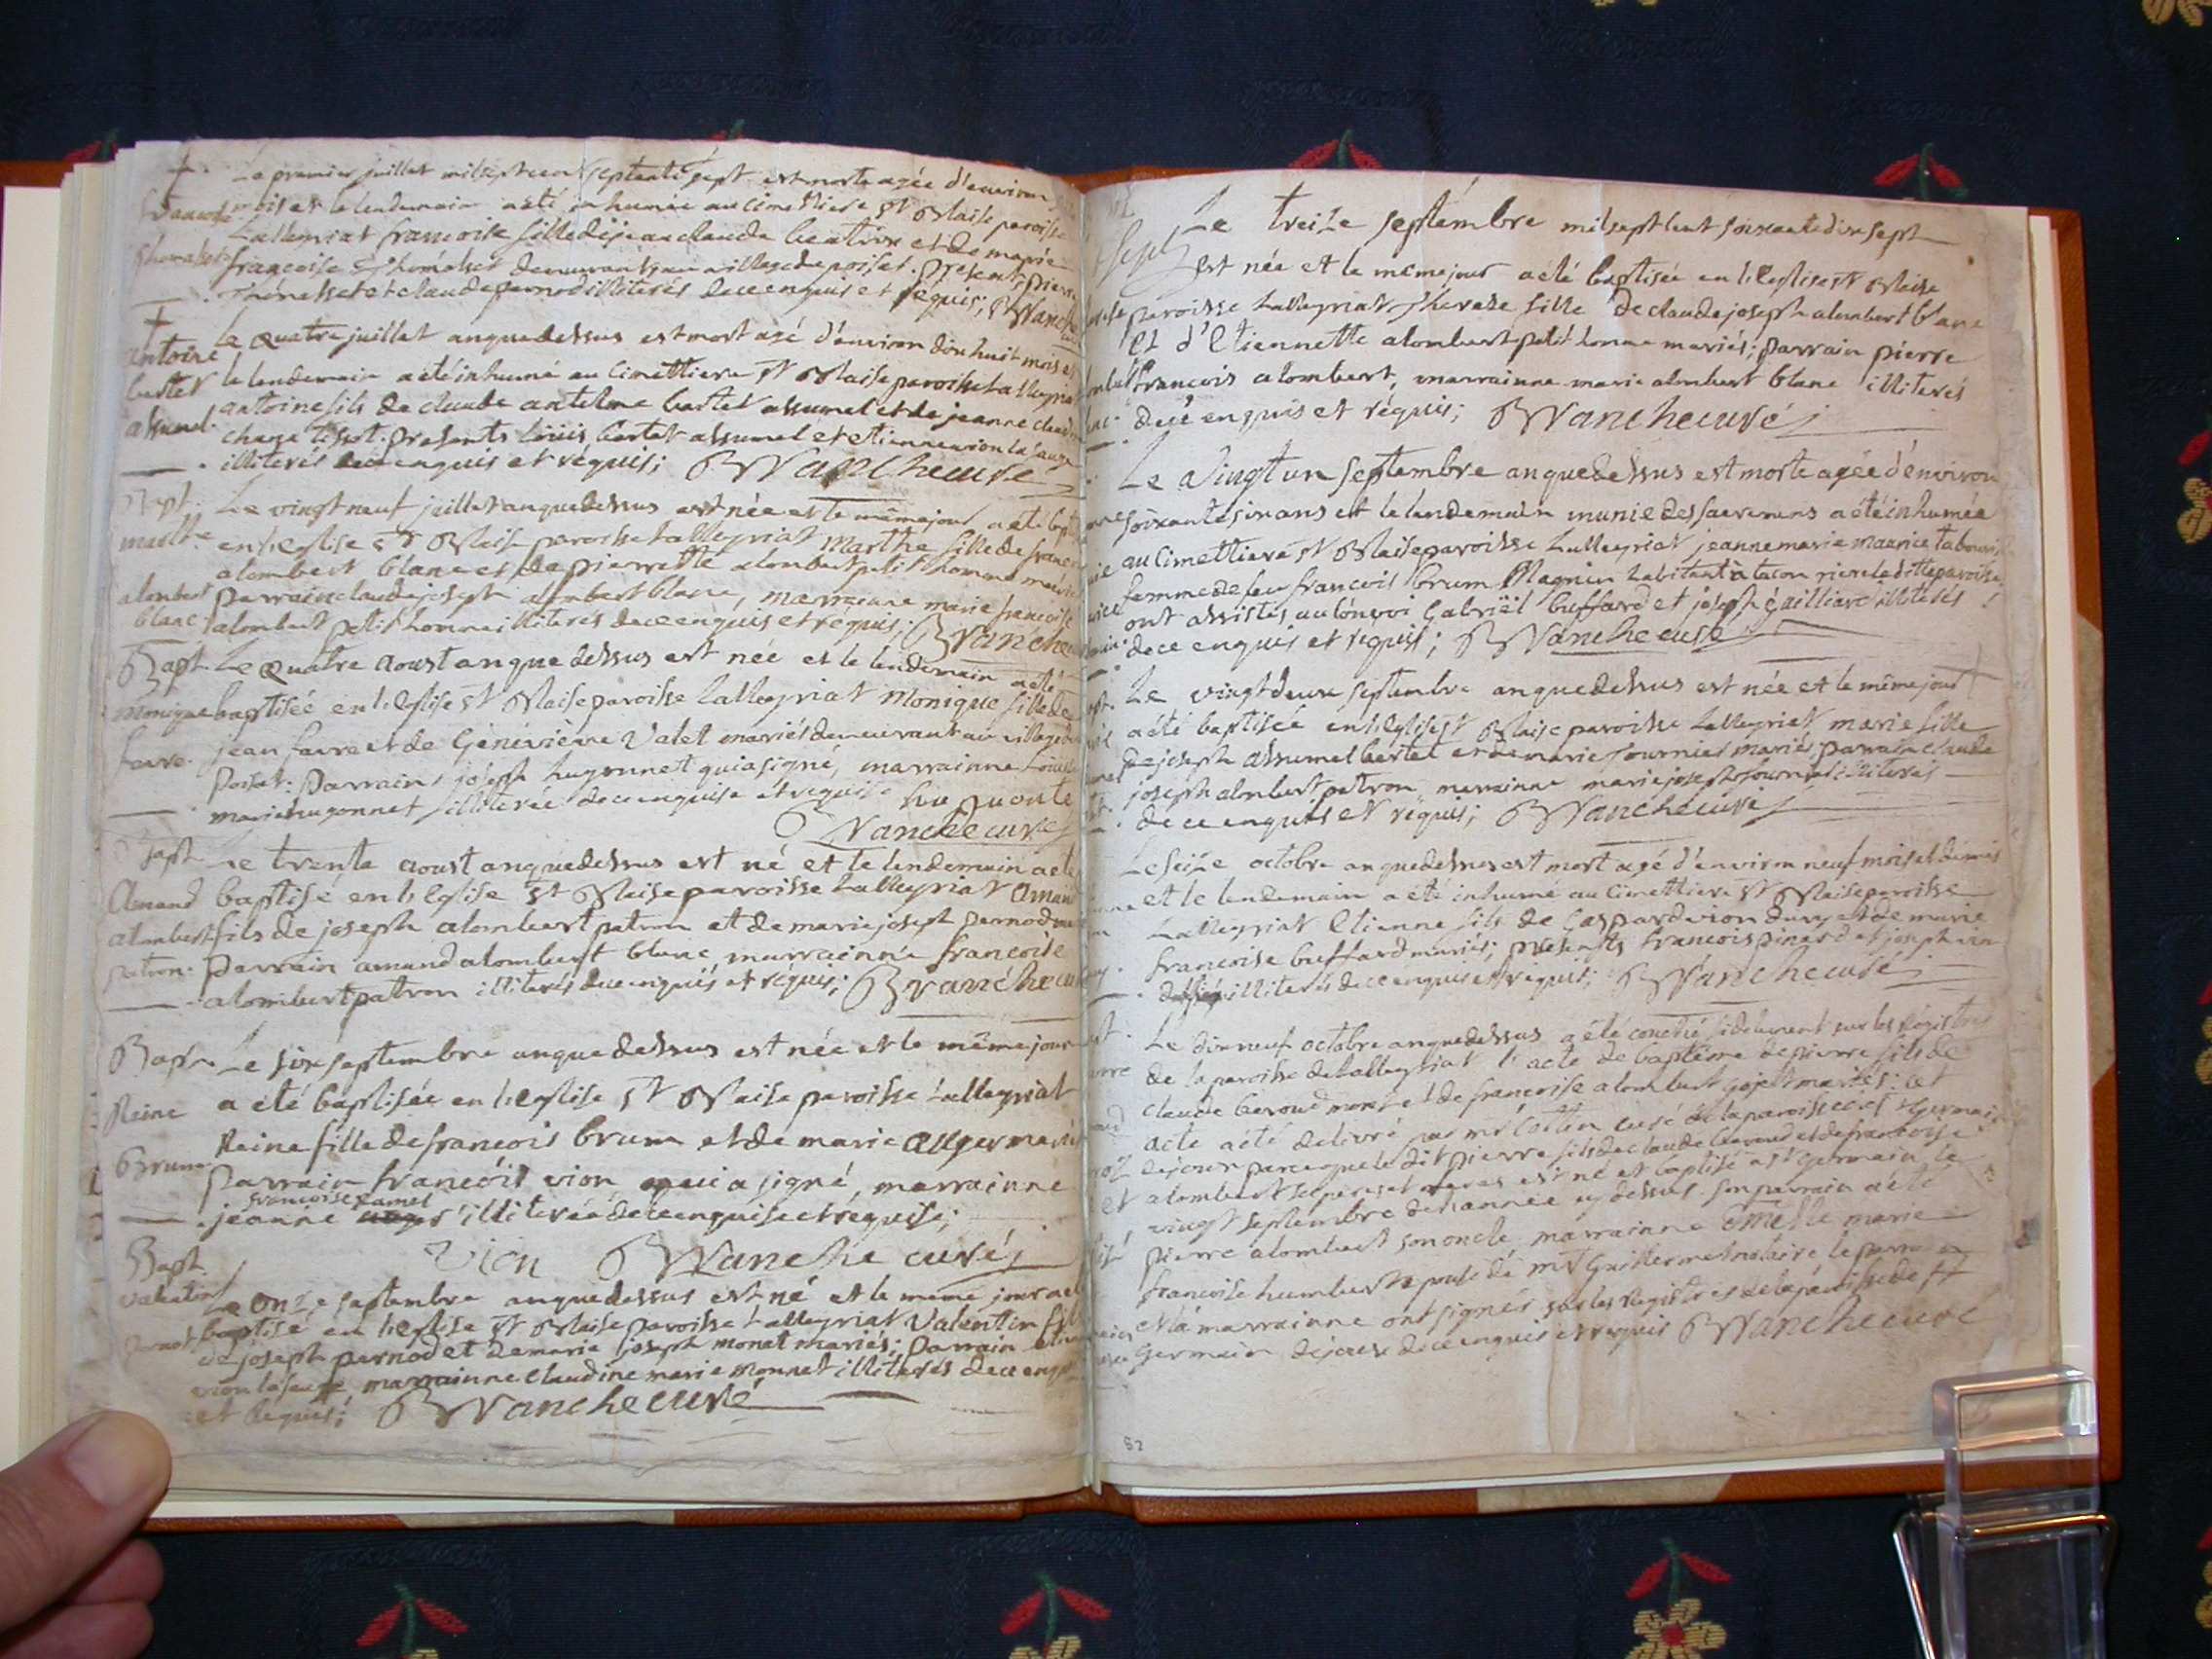 Le premier juillet mil sept cent septante sept est morte agée d'environ
mois et le lendemain a été inhumée au cimettiere St Blaise paroisse
Lalleyriat francoise fille de jean claude et de marie
francoise demeurants au village du poisat. presents pierre
et claude pernod illiterés de ce enquis et requis;
Le quatre juillet an que dessus est mort agé d'environ dix huit mois et
antoire
bertet
assumel.
le lendemain a été inhumé au cimettiere St Blaise paroisse Lalleyriat
antoine fils de claude antelme bertet assumel et de jeanne
tissot. presents loüis bertet assumel et etienne vion la sauge
illiterés de ce enquis et requis; BVanche curé
Bapt. Le vingt neuf juillet an que dessus est née et le même jour a été
marthe en l'eglise St Blaise paroisse Lalleyriat Marthe fille de
alombert blanc et de pierrette alombert petit homme mariés
alombert parrain claude joseph alombert blanc, marrainne marie francoise
blanc alombert petit homme illiterés de ce enquis et requis; BVanche
Bapt. Le quatre aoust an que dessus est née et le lendemain a été
monique baptisée en l'eglise St Blaise paroisse Lalleyriat Monique fille de
favre. jean favre et de Génevieve Valet mariés demeurant au village du
Poisat: Parrain joseph hugonnet qui a signé, marrainne
marie hugonnet illiterée de ce enquise et requise
BVanche curé
Bapt Le trente aoust an que dessus est né et le lendemain a été
Amand baptisé en l'eglise St Blaise paroisse Lalleyriat Amand
alombert fils de joseph alombert patron et de marie joseph pernod
patron. Parrain amand alombert blanc, marrainne francoise
alombert patron illiterés de ce enquis et réquis; BVanche
Bapt. Le six septembre an que dessus est née et le même jour
Reine a été baptisée en l'eglise St Blaise paroisse Lalleyriat
Reine fille de francois brum et de marie
Brum Parrain francois vion qui a signé, marrainne
francoise
jeanne illiterée de ce enquise et réquise;
Vion BVanche curé
Bapt.
valentin
Le onze septembre an que dessus est né et le même jour a été
baptisé en l'eglise St Blaise paroisse Lalleyriat Valentin fils
de joseph pernod et de marie joseph monet mariés; Parrain
vion la sauge, marrainne claudine marie Monnet illiterés de ce
et requis; BVanche curé
Le treize septembre mil sept cent soixante dix sept
est née et le même jour a été baptisée en l'eglise St Blaise
paroisse Lalleyriat therese fille de claude joseph alombert blanc
et d'Etiennette alombert petit homme mariés; parrain pierre
francois alombert, marrainne marie alombert blanc illiterés
de ce enquis et réquis; BVanche curé
Le vingt un septembre an que dessus est morte agée d'environ
soixante six ans et le lendemain munie des sacremens a été inhumée
au cimettiere St Blaise paroisse Lalleyriat jeanne marie maurice
femme de feu francois brum Magnin habitant à tacon riere la ditte paroisse,
ont assistés au convoi Gabriël buffard et joseph illiterés
de ce enquis et requis; BVanche curé
Le vingt deux septembre an que dessus est née et le même jour
a été baptisée en l'eglise St Blaise paroisse Lalleyriat marie fille
de joseph assumel bertet et de marie fournier mariés parrain claude
joseph alombert patron, marrainne marie joseph fournier illiterés
de ce enquis et réquis; BVanche curé
Le seize octobre an que dessus est mort agé d'environ neuf mois et demis
et le lendemain a été inhumé au cimettiere St Blaise paroisse
Lalleyriat Etienne fils de Gaspard vion dury et de marie
francoise buffard mariés; presents francois pinard et joseph
illiterés de ce enquis et requis; BVanche curé
Le dix neuf octobre an que dessus a été couché fidelement sur les Régistres
de la paroisse de Lalleyriat l'acte de baptême de pierre fils de
claude beroud et de francoise alombert gojet mariés: cet
acte a été delivré par mr curé de la paroisse de St Germain
de joux parceque le dit pierre fils de claude beroud et de francoise
alombert ses peres et meres est né et baptisé a St Germain le
vingt septembre de l'année cy dessus. son parrain a été
pierre alombert son oncle, marrainne marie
francoise humbert épouse de mr Guillermet notaire. le parrain
et la marrainne ont signés sur les Régistres de la paroisse de St
Germain de joux de ce enquis et requis BVanche curé
52